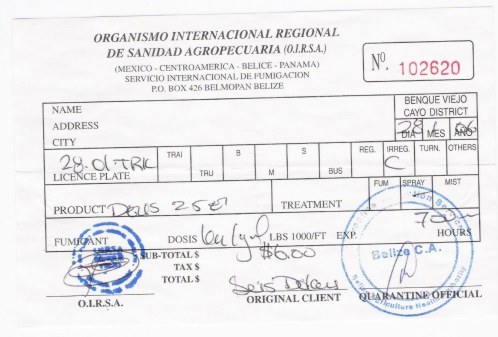 ORGANISMO INTERNACIONAL REGIONAL
DE SANIDAD AGROPECUARIA (O.I.R.S.A.)
(MEXICO - CENTROAMERICA - BELICE - PANAMA)
SERVICIO INTERNACIONAL DE FUMIGACION
P.O. BOX 426 BELMOPAN BELIZE
Nº. 102620
NAME
ADDRESS
CITY
BENQUE VIEJO
CAYO DISTRICT
29 1 06
DIA MES AÑO
LICENCE PLATE
TRAI TRU B M S BUS REG. IRREG. TURN. OTHERS
C
PRODUCT
TREATMENT
FUM SPRAY MIST
FUMIGANT DOSIS LBS 1000/FT EXP. HOURS
SUB-TOTAL $ $6.00
TAX $
TOTAL $
Seis Dolares
O.I.R.S.A.
ORIGINAL CLIENT
QUARANTINE OFFICIAL
Belize C.A.